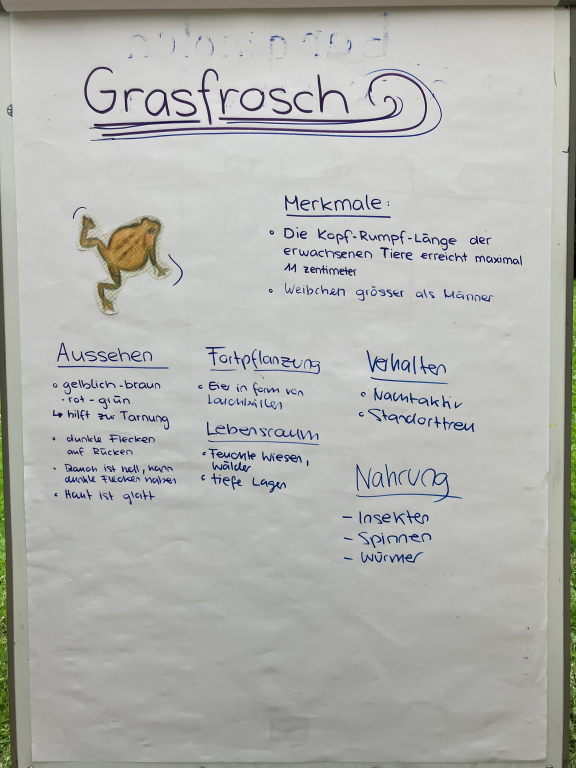 Grasfrosch
Merkmale:
• Die Kopf-Rumpf-Länge der
erwachsenen Tiere erreicht maximal
11 zentimeter
• Weibchen grösser als Männer
Aussehen
• gelblich-braun
• rot-grün
↳ hilft zur Tarnung
• dunkle Flecken
auf Rücken
• Bauch ist hell, kann
dunkle Flecken haben
• Haut ist glatt
Fortpflanzung
• Eier in form von
Laichbällen
Lebensraum
• Feuchte Wiesen,
Wälder
• tiefe Lagen
Verhalten
• Nachtaktiv
• Standorttreu
Nahrung
- Insekten
- Spinnen
- Würmer